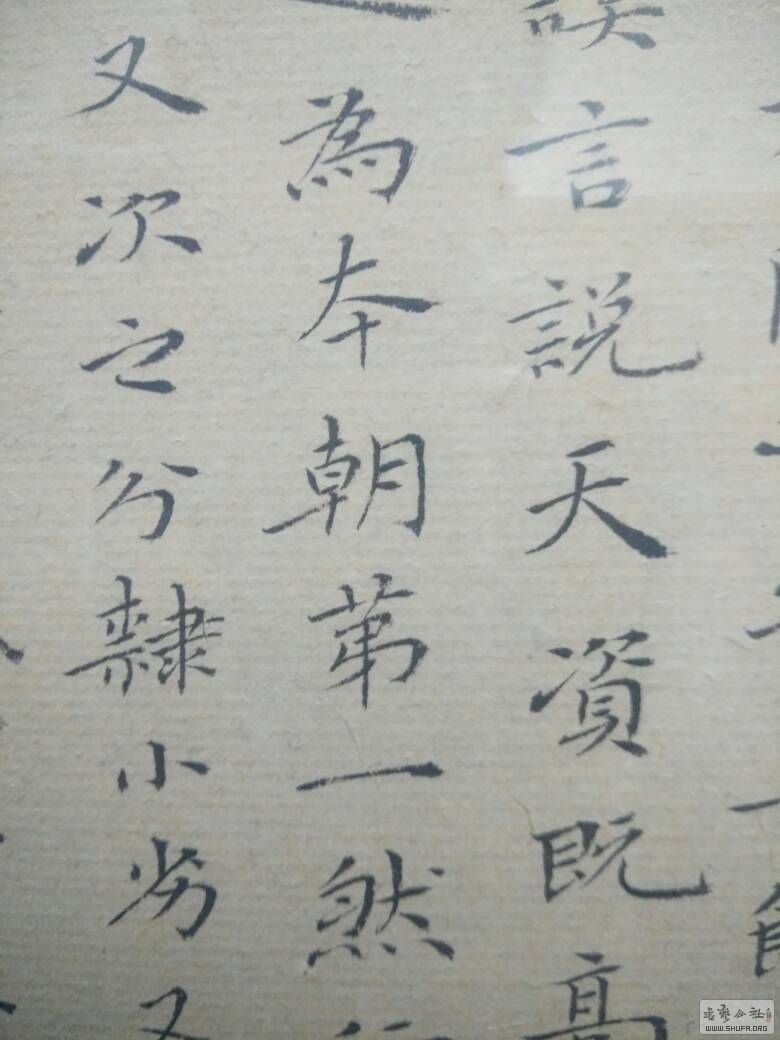 言說天資既髙
為本朝苐一然
又次之分隸小劣又
書藝公社
WWW.SHUFA.ORG